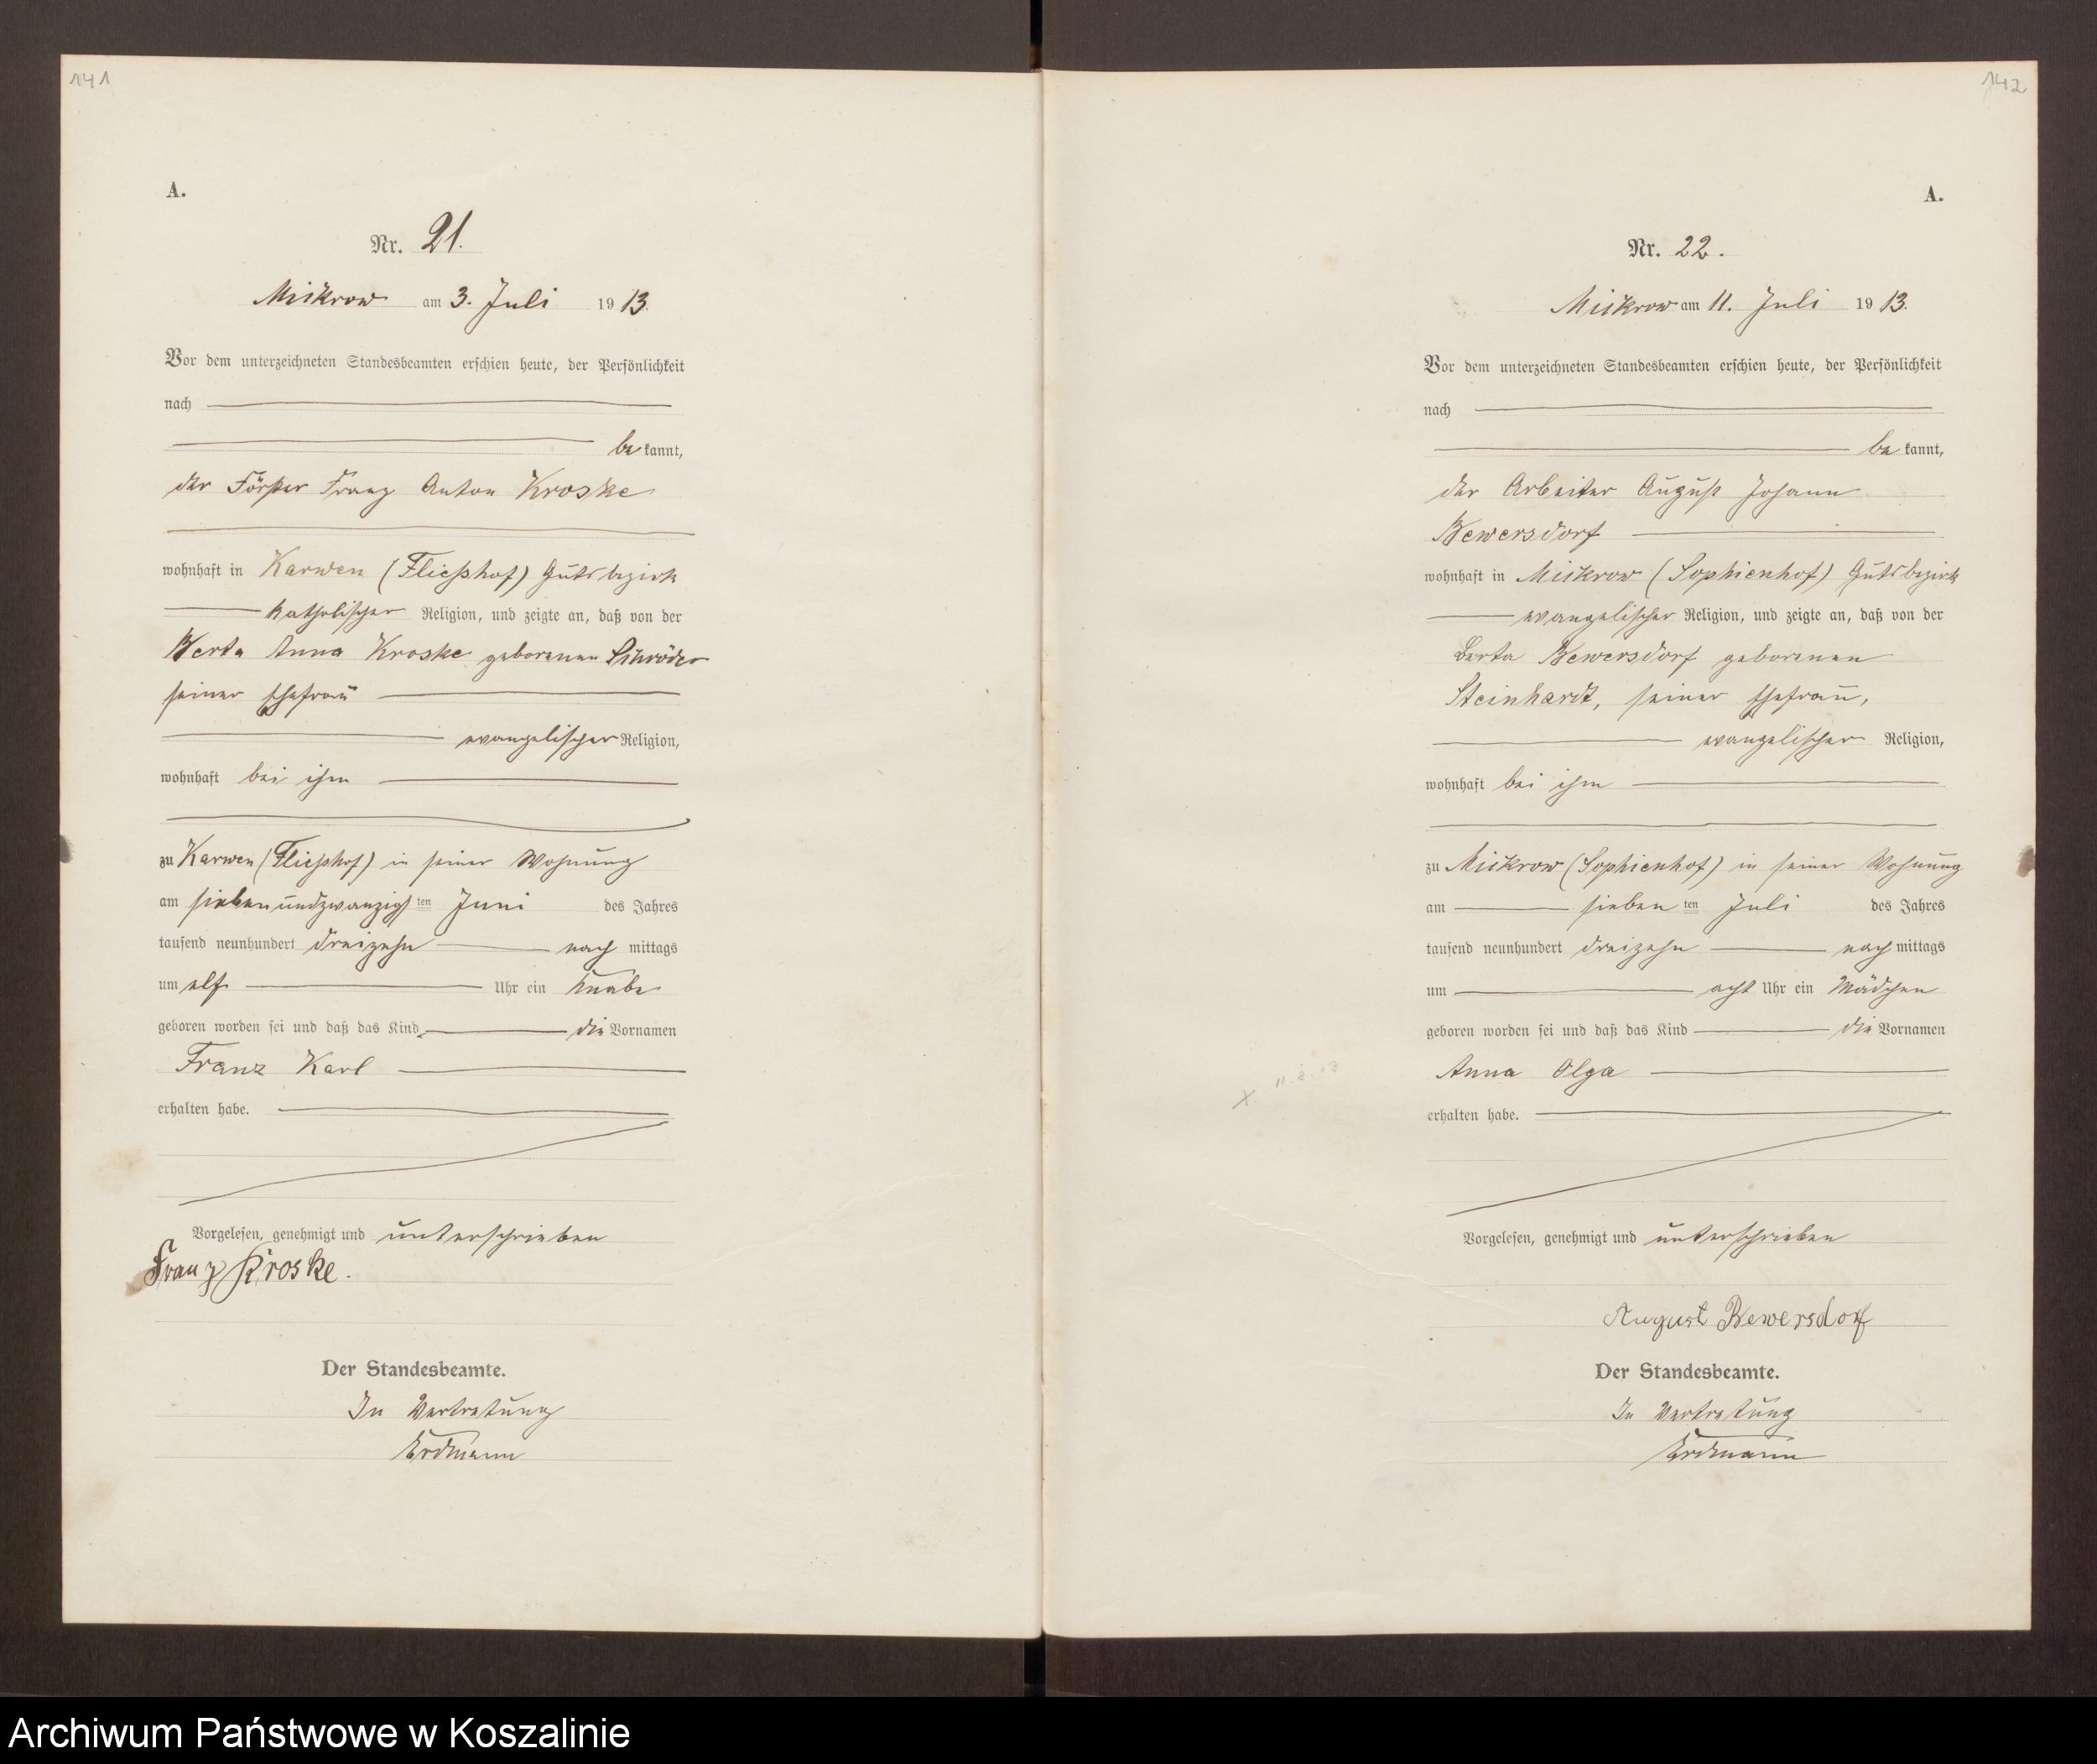 141
A.
Nr. 21.
Mickrow am 3. Juli 1913.
Vor dem unterzeichneten Standesbeamten erschien heute, der Persönlichkeit
nach
bekannt,
der Förster Franz Anton Kroske
wohnhaft in Karwen (Fließhof) Gutsbezirk
katholischer Religion, und zeigte an, daß von der
Berta Anna Kroske geborenen Schröder
seiner Ehefrau
evangelischer Religion,
wohnhaft bei ihm
zu Karwen (Fließhof) in seiner Wohnung
am siebenundzwanzigsten Juni des Jahres
tausend neunhundert dreizehn nach mittags
um elf Uhr ein Knabe
geboren worden sei und daß das Kind die Vornamen
Franz Karl
erhalten habe.
Vorgelesen, genehmigt und unterschrieben
Franz Kroske.
Der Standesbeamte.
In Vertretung
Erdmann
142
A.
Nr. 22.
Mickrow am 11. Juli 1913.
Vor dem unterzeichneten Standesbeamten erschien heute, der Persönlichkeit
nach
bekannt,
der Arbeiter August Johann
Bewersdorf
wohnhaft in Mickrow (Sophienhof) Gutsbezirk
evangelischer Religion, und zeigte an, daß von der
Berta Bewersdorf geborenen
Steinhardt, seiner Ehefrau,
evangelischer Religion,
wohnhaft bei ihm
zu Mickrow (Sophienhof) in seiner Wohnung
am sieben ten Juli des Jahres
tausend neunhundert dreizehn nach mittags
um acht Uhr ein Mädchen
geboren worden sei und daß das Kind die Vornamen
Anna Olga
erhalten habe.
Vorgelesen, genehmigt und unterschrieben
August Bewersdorf
Der Standesbeamte.
In Vertretung
Erdmann
Archiwum Państwowe w Koszalinie